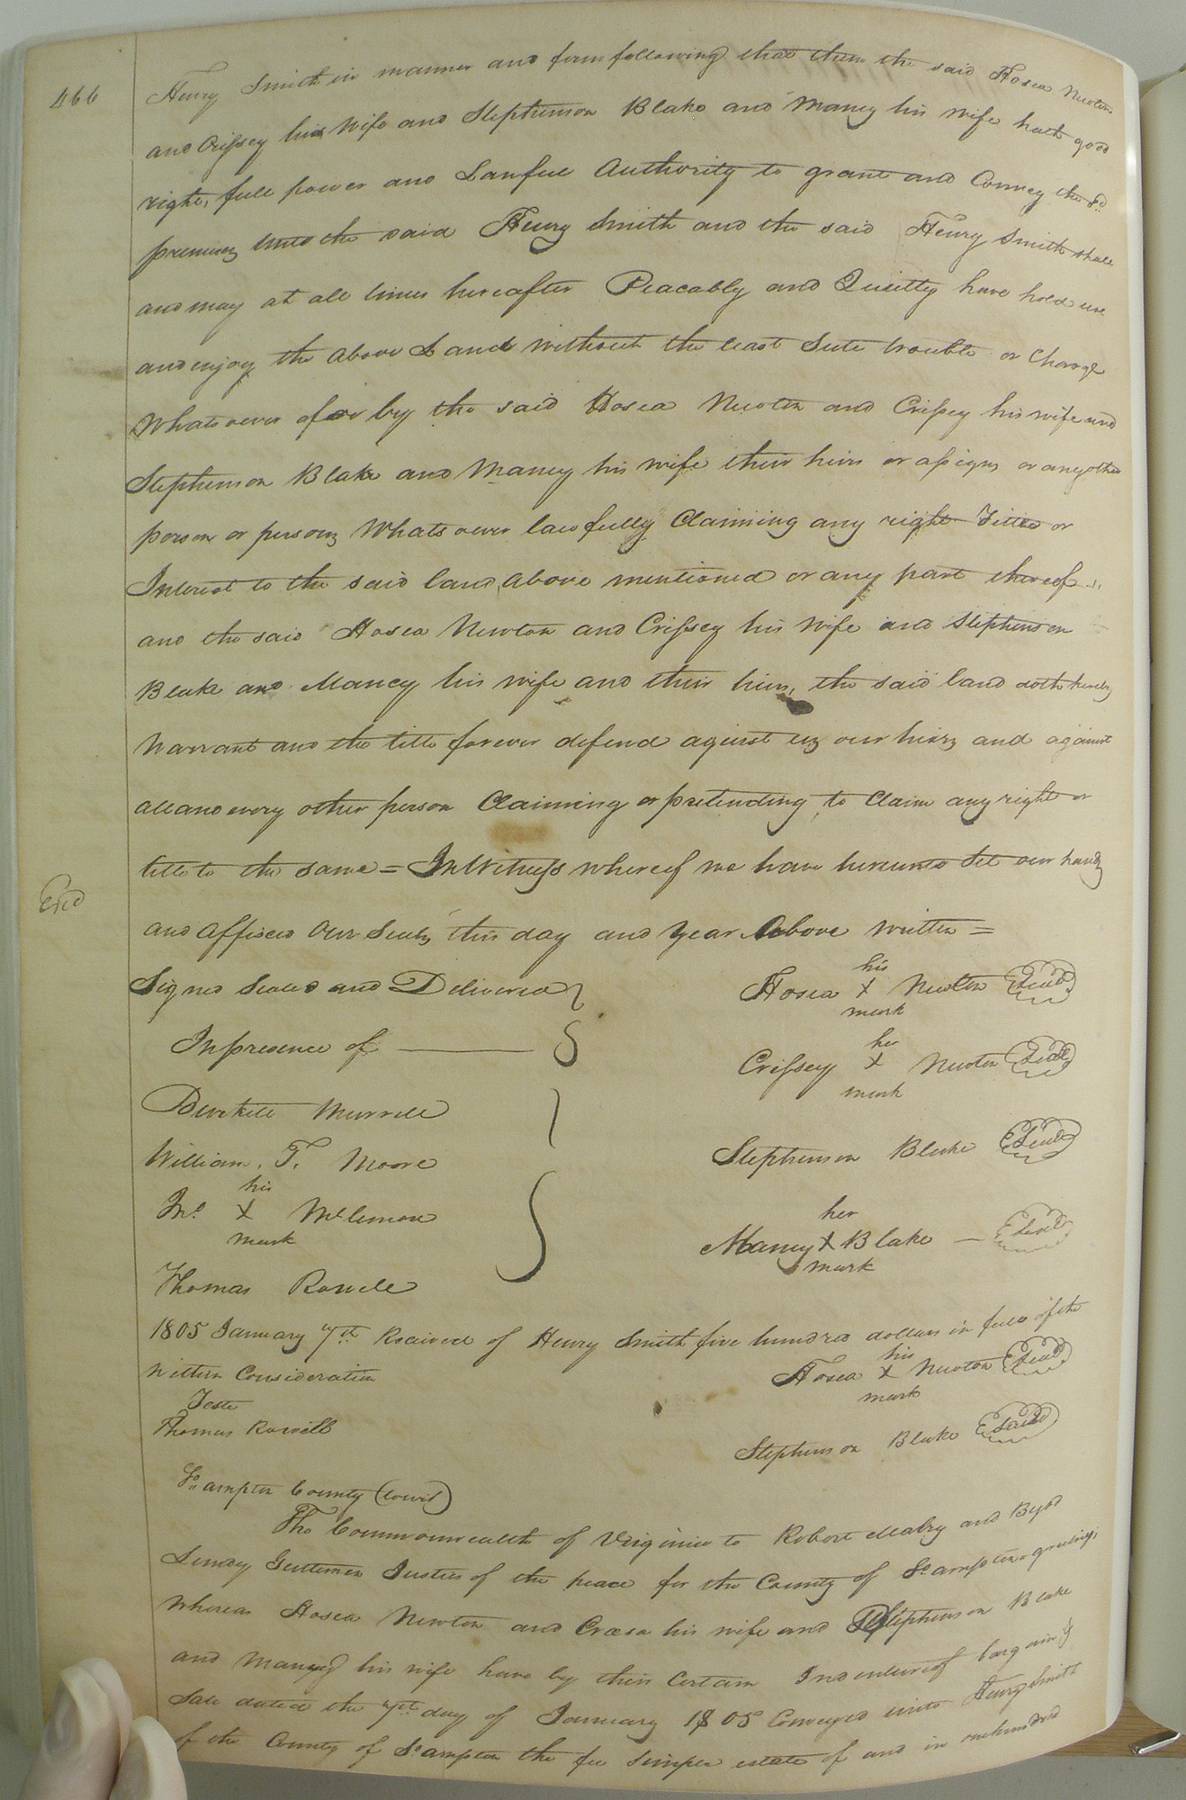 466
Henry Smith in manner and form following that them the said Hosea Newton
and Crissey his Wife and Stephenson Blake and Mancy his Wife hath good
right, full power and Lawful Authority to grant and Convey the sd.
premises unto the said Henry Smith and the said Henry Smith shall
and may at all times hereafter Peacably and Quietly have hold use
and enjoy the Above Land without the least Sute trouble or Charge
Whatsoever of or by the said Hosea Newton and Crissey his wife and
Stephenson Blake and Mancy his wife their heirs or assigns or any other
person or persons Whatsoever lawfully Claiming any right Title or
Interest to the said land above mentioned or any part thereof
and the said Hosea Newton and Crissey his Wife and Stephenson
Blake and Mancy his wife and their heirs, the said land doth hereby
Warrant and the title forever defend against us our heirs and against
all and every other person Claiming or pretending to Claim any right or
title to the same = In Witness whereof we have hereunto Set our hands
Exd
and affixed Our Seals this day and year Above written =
Signed Sealed and Delivered
In presence of
Hosea his X mark Newton Seal
Crissey her X mark Newton Seal
Burkett Murrell
William. T. Moore
Stephenson Blake Seal
Jno. his X mark McLemore
Mancy her X mark Blake Seal
Thomas Rowell
1805 January 7th Received of Henry Smith five hundred dollars in full of the
Within Consideration
Hosea his X mark Newton Seal
Teste
Thomas Rowell
Stephenson Blake Seal
So.ampton County (towit)
The Commonwealth of Virginia to Robert Mabry and Byrd
Lundy Gentlemen Justices of the peace for the County of So.ampton greeting,
Whereas Hosea Newton and Creesa his wife and Stephenson Blake
and Mancy his wife have by their Certain Indenture of bargain &
Sale dated the 7th day of January 1805 Conveyed unto Henry Smith
of the County of So.ampton the fee simple estate of and in one hundred